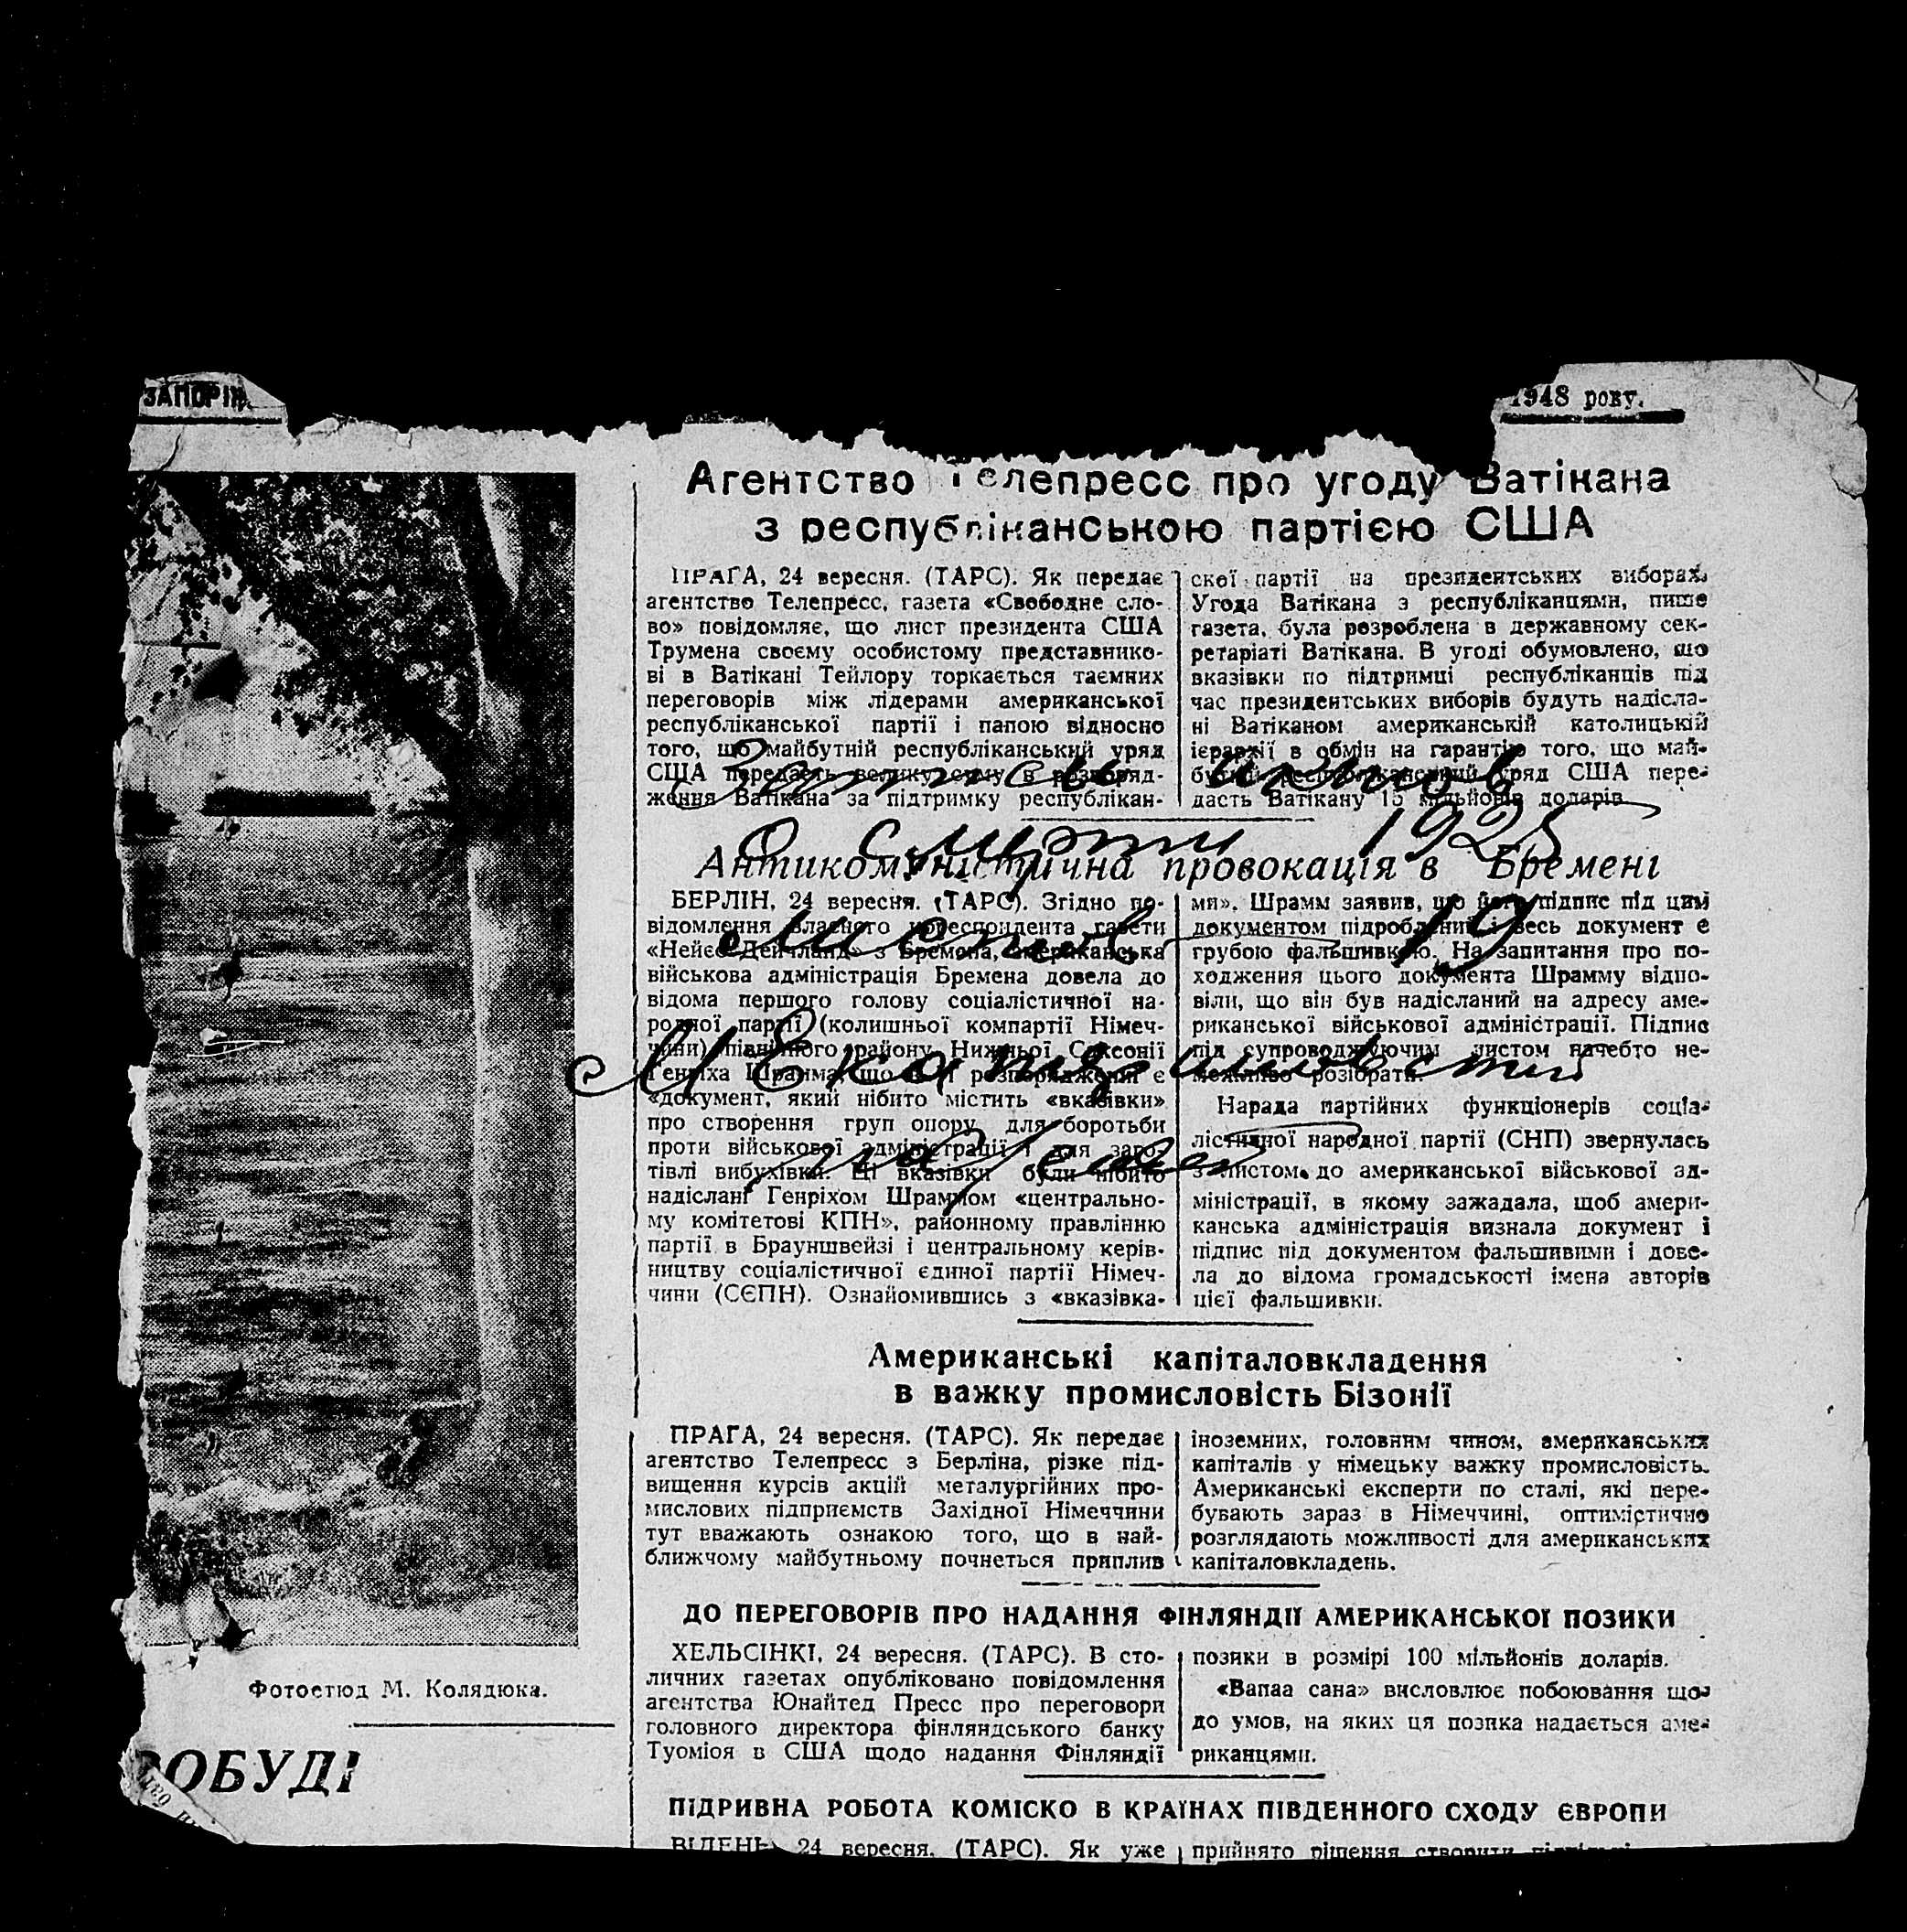 ЗАПОРІЖ
1948 року.
Агентство Телепресс про угоду Ватікана
з республіканською партією США
ПРАГА, 24 вересня. (ТАРС). Як передає
агентство Телепресс, газета «Свободне сло-
во» повідомляє, що лист президента США
Трумена своєму особистому представнико-
ві в Ватікані Тейлору торкається таємних
переговорів між лідерами американської
республіканської партії і папою відносно
того, що майбутній республіканський уряд
США передасть велику суму в розпоряд-
ження Ватікана за підтримку республікан-
скої партії на президентських виборах.
Угода Ватікана з республіканцями, пише
газета, була розроблена в державному сек-
ретаріаті Ватікана. В угоді обумовлено, що
вказівки по підтримці республіканців під
час президентських виборів будуть надісла-
ні Ватіканом американській католицькій
ієрархії в обмін на гарантію того, що май-
бутній республіканський уряд США пере-
дасть Ватікану 15 мільйонів доларів.
Запись актов
о смерти 1925
Антикомуністична провокація в Бремені
БЕРЛІН, 24 вересня. (ТАРС). Згідно по-
відомлення власного кореспондента газети
«Нейєс Дейчланд» з Бремена, американська
військова адміністрація Бремена довела до
відома першого голову соціалістичної на-
родної партії (колишньої компартії Німеч-
чини) північного району Нижньої Саксонії
Генріха Шрамма, що в її розпорядженні є
«документ, який нібито містить «вказівки»
про створення груп опору для боротьби
проти військової адміністрації і для заго-
тівлі вибухівки. Ці вказівки були нібито
надіслані Генріхом Шраммом «центрально-
му комітетові КПН», районному правлінню
партії в Брауншвейзі і центральному керів-
ництву соціалістичної єдиної партії Німеч-
чини (СЄПН). Ознайомившись з «вказівка-
ми», Шрамм заявив, що його підпис під цим
документом підроблений і весь документ є
грубою фальшивкою. На запитання про по-
ходження цього документа Шрамму відпо-
віли, що він був надісланий на адресу аме-
риканської військової адміністрації. Підпис
під супроводжуючим листом начебто не-
можливо розібрати.
Нарада партійних функціонерів соціа-
лістичної народної партії (СНП) звернулась
з листом до американської військової ад-
міністрації, в якому зажадала, щоб амери-
канська адміністрація визнала документ і
підпис під документом фальшивими і дове-
ла до відома громадськості імена авторів
цієї фальшивки.
19
Американські капіталовкладення
в важку промисловість Бізонії
ПРАГА, 24 вересня. (ТАРС). Як передає
агентство Телепресс з Берліна, різке під-
вищення курсів акцій металургійних про-
мислових підприємств Західної Німеччини
тут вважають ознакою того, що в най-
ближчому майбутньому почнеться приплив
іноземних, головним чином, американських
капіталів у німецьку важку промисловість.
Американські експерти по сталі, які пере-
бувають зараз в Німеччині, оптимістично
розглядають можливості для американських
капіталовкладень.
ДО ПЕРЕГОВОРІВ ПРО НАДАННЯ ФІНЛЯНДІЇ АМЕРИКАНСЬКОЇ ПОЗИКИ
ХЕЛЬСІНКІ, 24 вересня. (ТАРС). В сто-
личних газетах опубліковано повідомлення
агентства Юнайтед Пресс про переговори
головного директора фінляндського банку
Туоміоя в США щодо надання Фінляндії
позики в розмірі 100 мільйонів доларів.
«Вапаа сана» висловлює побоювання що-
до умов, на яких ця позика надається аме-
риканцями.
ПІДРИВНА РОБОТА КОМІСКО В КРАЇНАХ ПІВДЕННОГО СХОДУ ЄВРОПИ
ВІДЕНЬ, 24 вересня. (ТАРС). Як уже
прийнято рішення створити
Фотоетюд М. Колядюка.
ОБУДІ